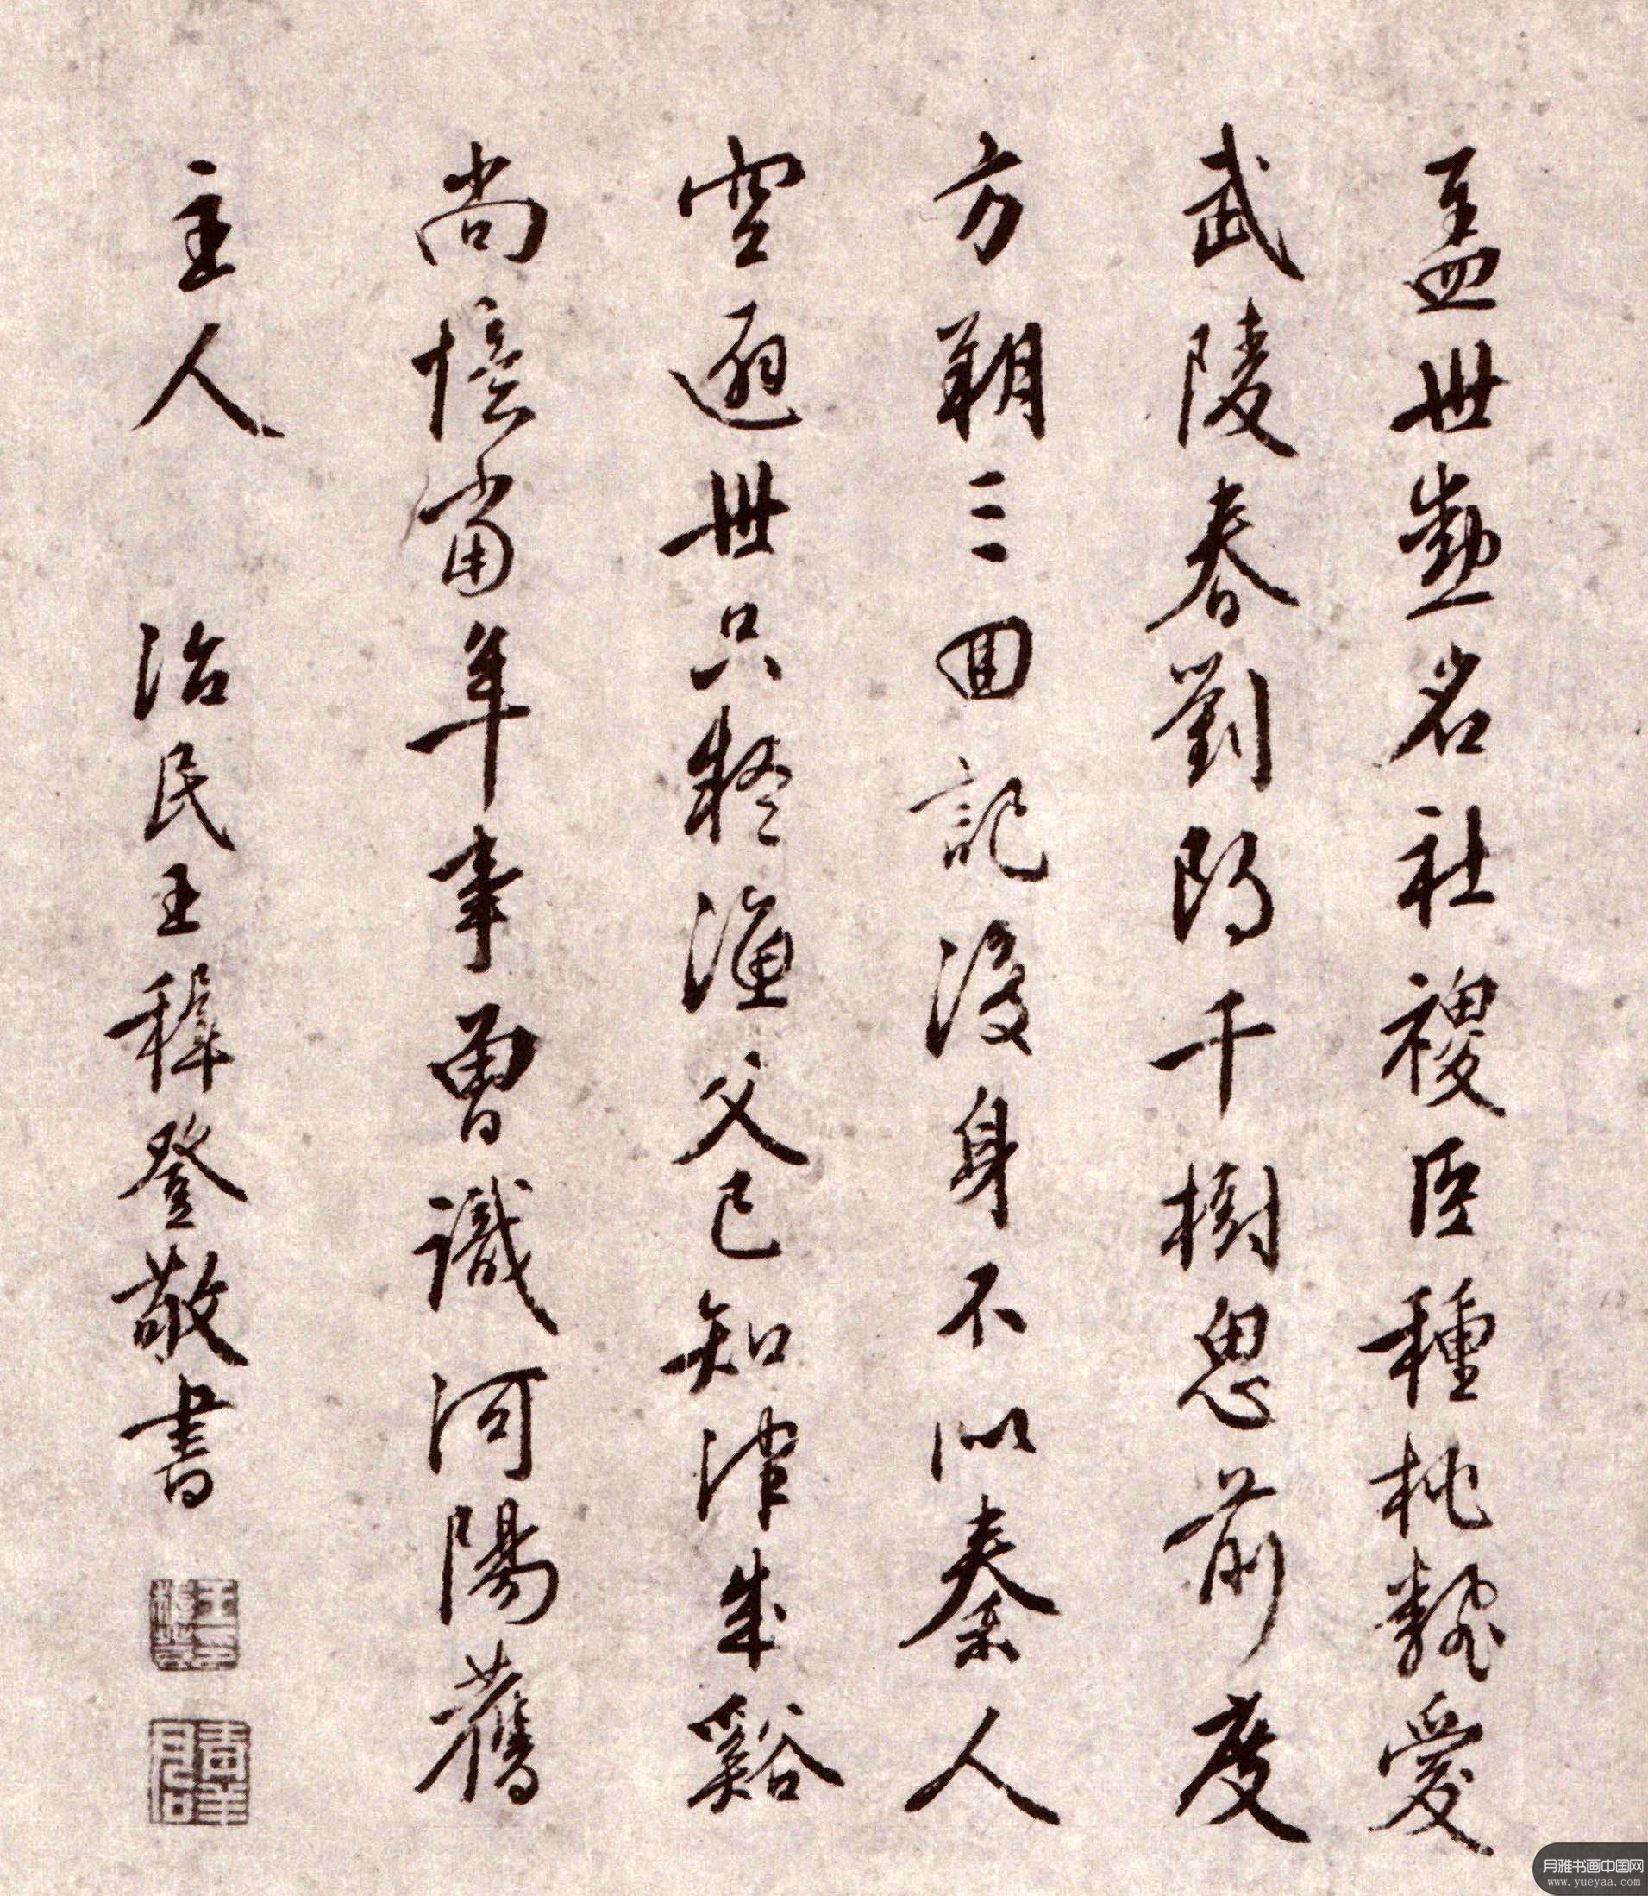 盖世勳名社稷臣種桃新愛
武陵春劉郎千樹思前度
方朔三回記後身不似秦人
空避世只疑漁父已知津成谿
尚憶當年事曾識河陽舊
主人 治民王穉登敬書
月雅书画中国网
www.yueyaa.com